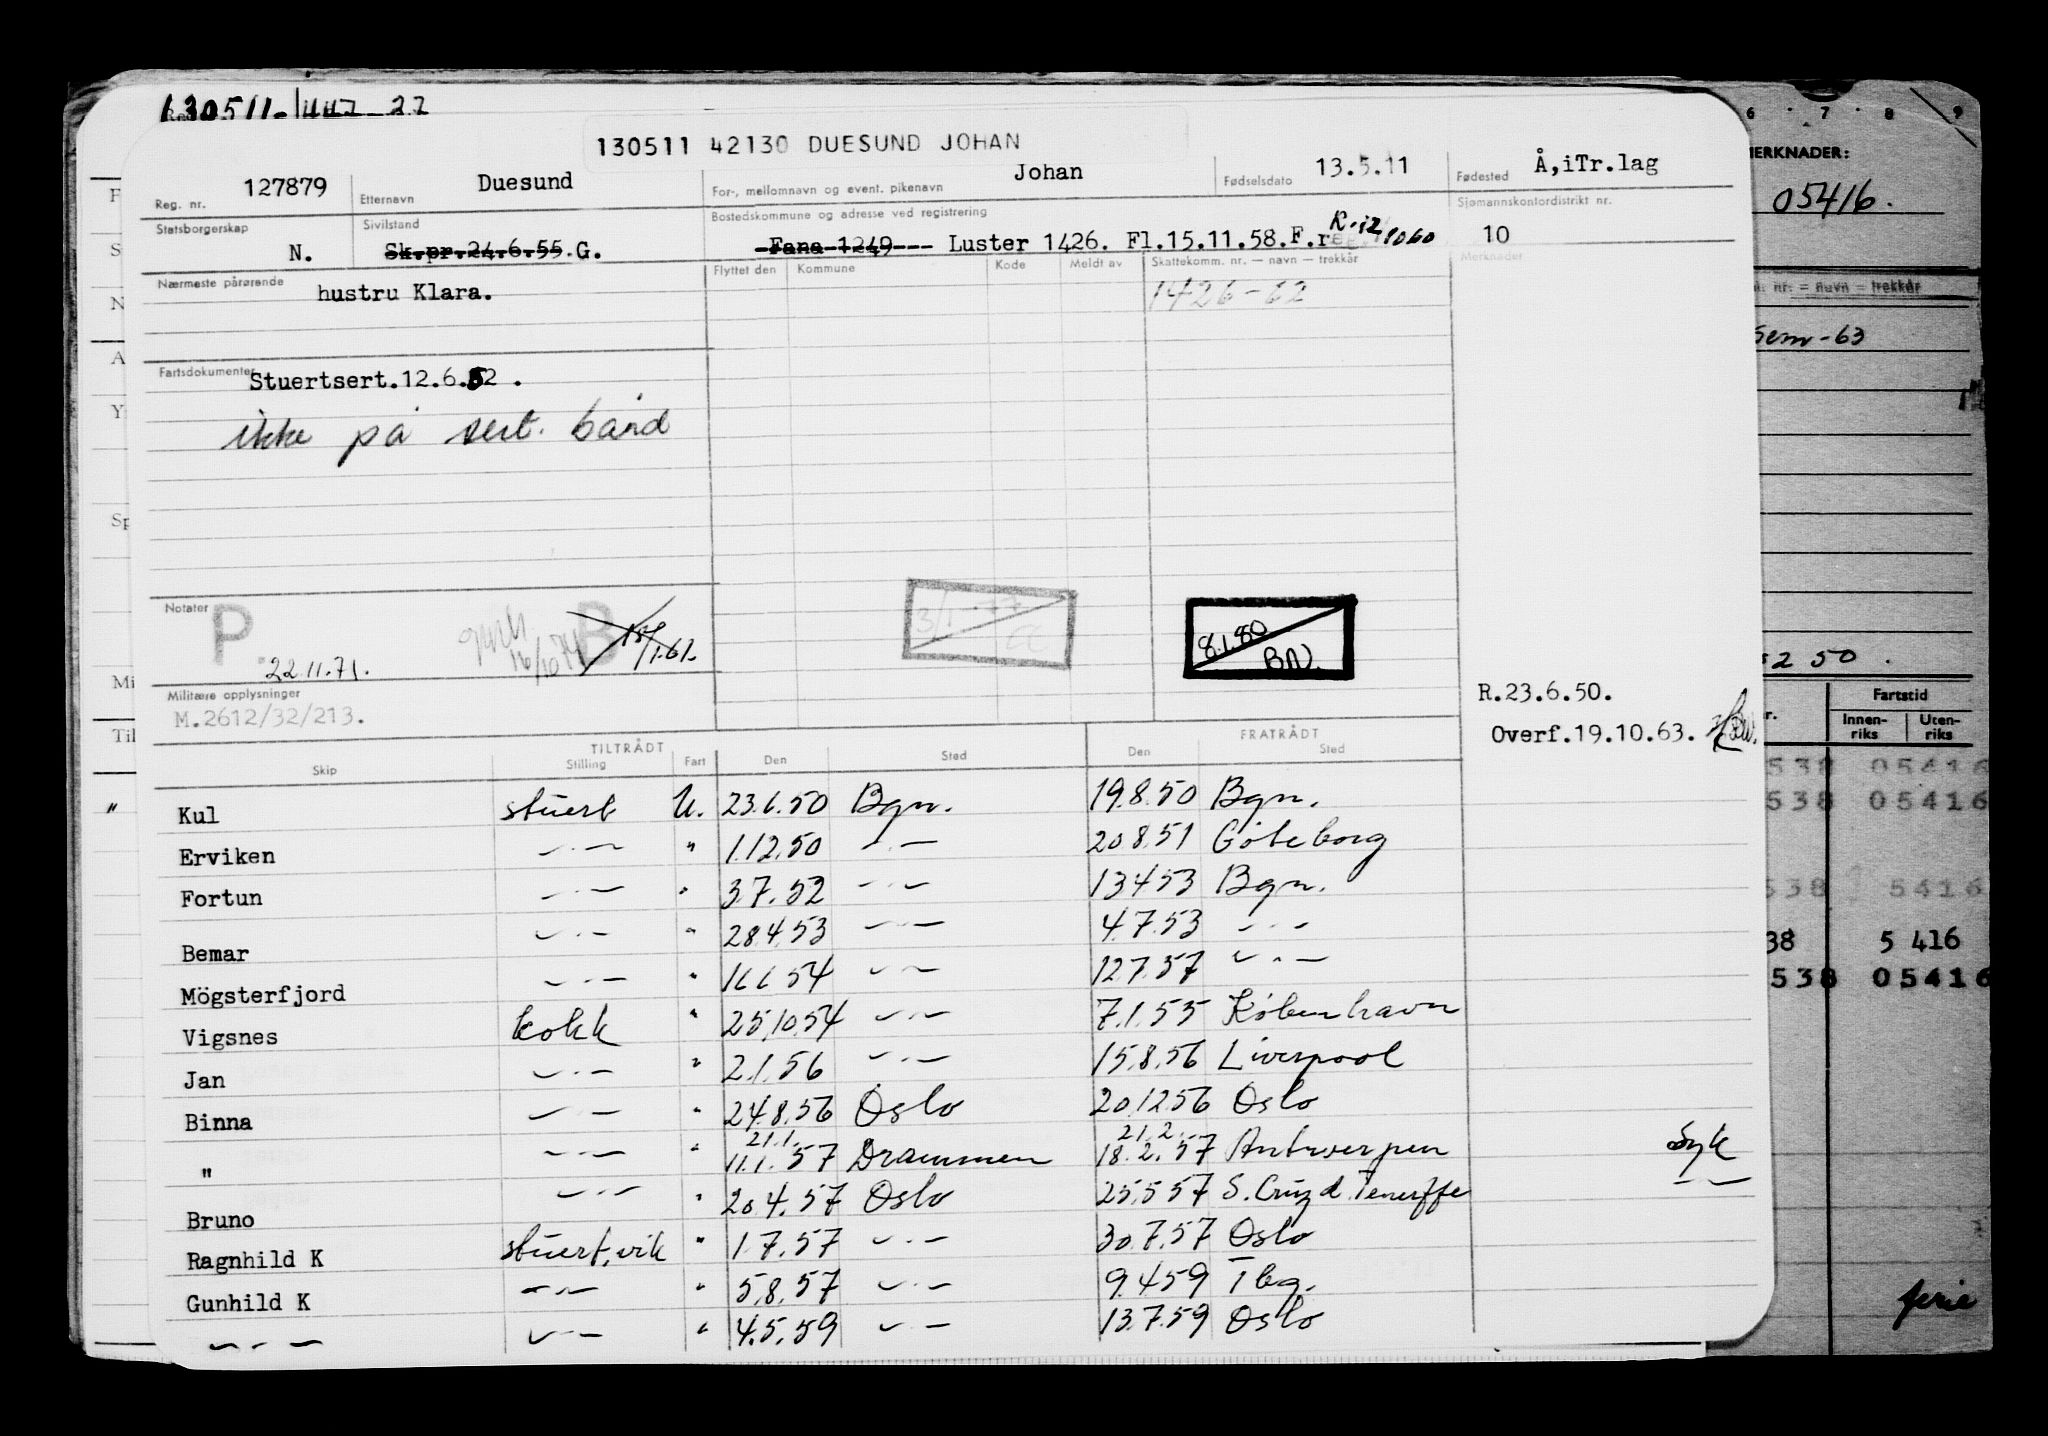 130511-447-27
130511 42130 DUESUND JOHAN
Reg. nr. 127879 Etternavn Duesund For-, mellomnavn og event. pikenavn Johan Fødselsdato 13.5.11 Fødested Å,iTr.lag
Statsborgerskap N. Sivilstand Sk.pr.24.6.55.G. Bostedskommune og adresse ved registrering Fana 1249--- Luster 1426. Fl.15.11.58.F.r Sjømannskontordistrikt nr. 10
Nærmeste pårørende hustru Klara. Flyttet den Kommune Kode Meldt av Skattekomm. nr. — navn — trekkår Merknader
1426-62
Fartsdokumenter Stuertsert.12.6.52.
ikke på sert. bånd
Notater P B
22.11.71. 16/10 1.61.
3/1-77
8.1.80 BN.
Militære opplysninger
M.2612/32/213.
R.23.6.50.
Overf.19.10.63.
TILTRÅDT FRATRÅDT
Skip Stilling Fart Den Sted Den Sted
Kul stuert U. 23.6.50 Bgn. 19.8.50 Bgn.
Erviken —.— " 1.12.50 —.— 20.8.51 Göteborg
Fortun —.— " 3.7.52 —.— 13.4.53 Bgn.
Bemar —.— " 28.4.53 —.— 4.7.53 —.—
Mögsterfjord —.— " —.— —.—
Vigsnes kokk " 25.10.54 —.— 7.1.55 København
Jan —.— " 2.1.56 —.— 15.8.56 Liverpool
Binna —.— " 24.8.56 Oslo 20.12.56 Oslo
" —.— " 21.1. 11.1.57 Drammen 21.2. 18.2.57 Antwerpen Syk
Bruno —.— " 20.4.57 Oslo 25.5.57 S. Cruz d. Teneriffe —.—
Ragnhild K stuert,vik " 1.7.57 —.— 30.7.57 Oslo
Gunhild K —.— " 5.8.57 —.— 9.4.59 Tbg.
—.— —.— " 4.5.59 —.— 13.7.59 Oslo
6 7 8 9
MERKNADER:
05416.
nr. = navn = trekkår
Sem-63
250.
Fartstid
Innen-riks Uten-riks
538 05416
538 05416
538 5416
38 5 416
538 05416
ferie